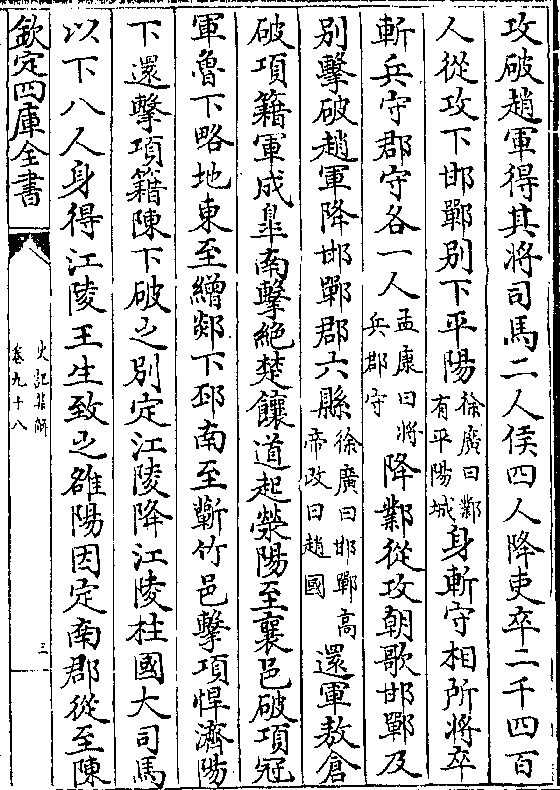 攻破趙軍得其將司馬二人侯四人降吏卒二千四百
人從攻下邯鄲别下平陽徐廣曰鄴有平陽城身斬守相所將卒
斬兵守郡守各一人孟康曰將兵郡守降鄴從攻朝歌邯鄲及
别擊破趙軍降邯鄲郡六縣徐廣曰邯鄲高帝改曰趙國還軍敖倉
破項籍軍成臯南擊絶楚饟道起滎陽至襄邑破項冠
軍魯下略地東至繒郯下邳南至蘄竹邑擊項悍濟陽
下還擊項籍陳下破之别定江陵降江陵柱國大司馬
以下八人身得江陵王生致之雒陽因定南郡從至陳
欽定四庫全書
史記集解
卷九十八
三